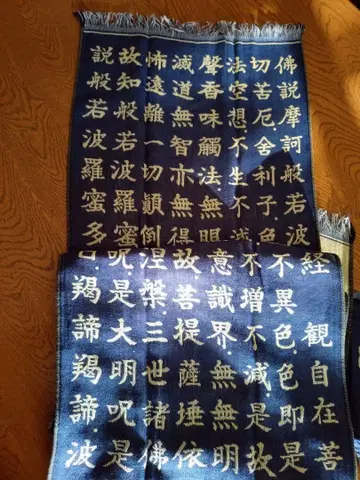 佛説摩訶般若波
切苦厄舍利子色
法空想不生不滅
聲香味觸法無明
滅道無智亦無得
怖遠離一切顛倒
故知般若波羅蜜
説般若波羅蜜多
経 観自在菩
不異色色即是
不増不減是故
意識界無無明
故菩提薩埵依
涅槃三世諸佛
呪是大明呪是
羯諦羯諦波